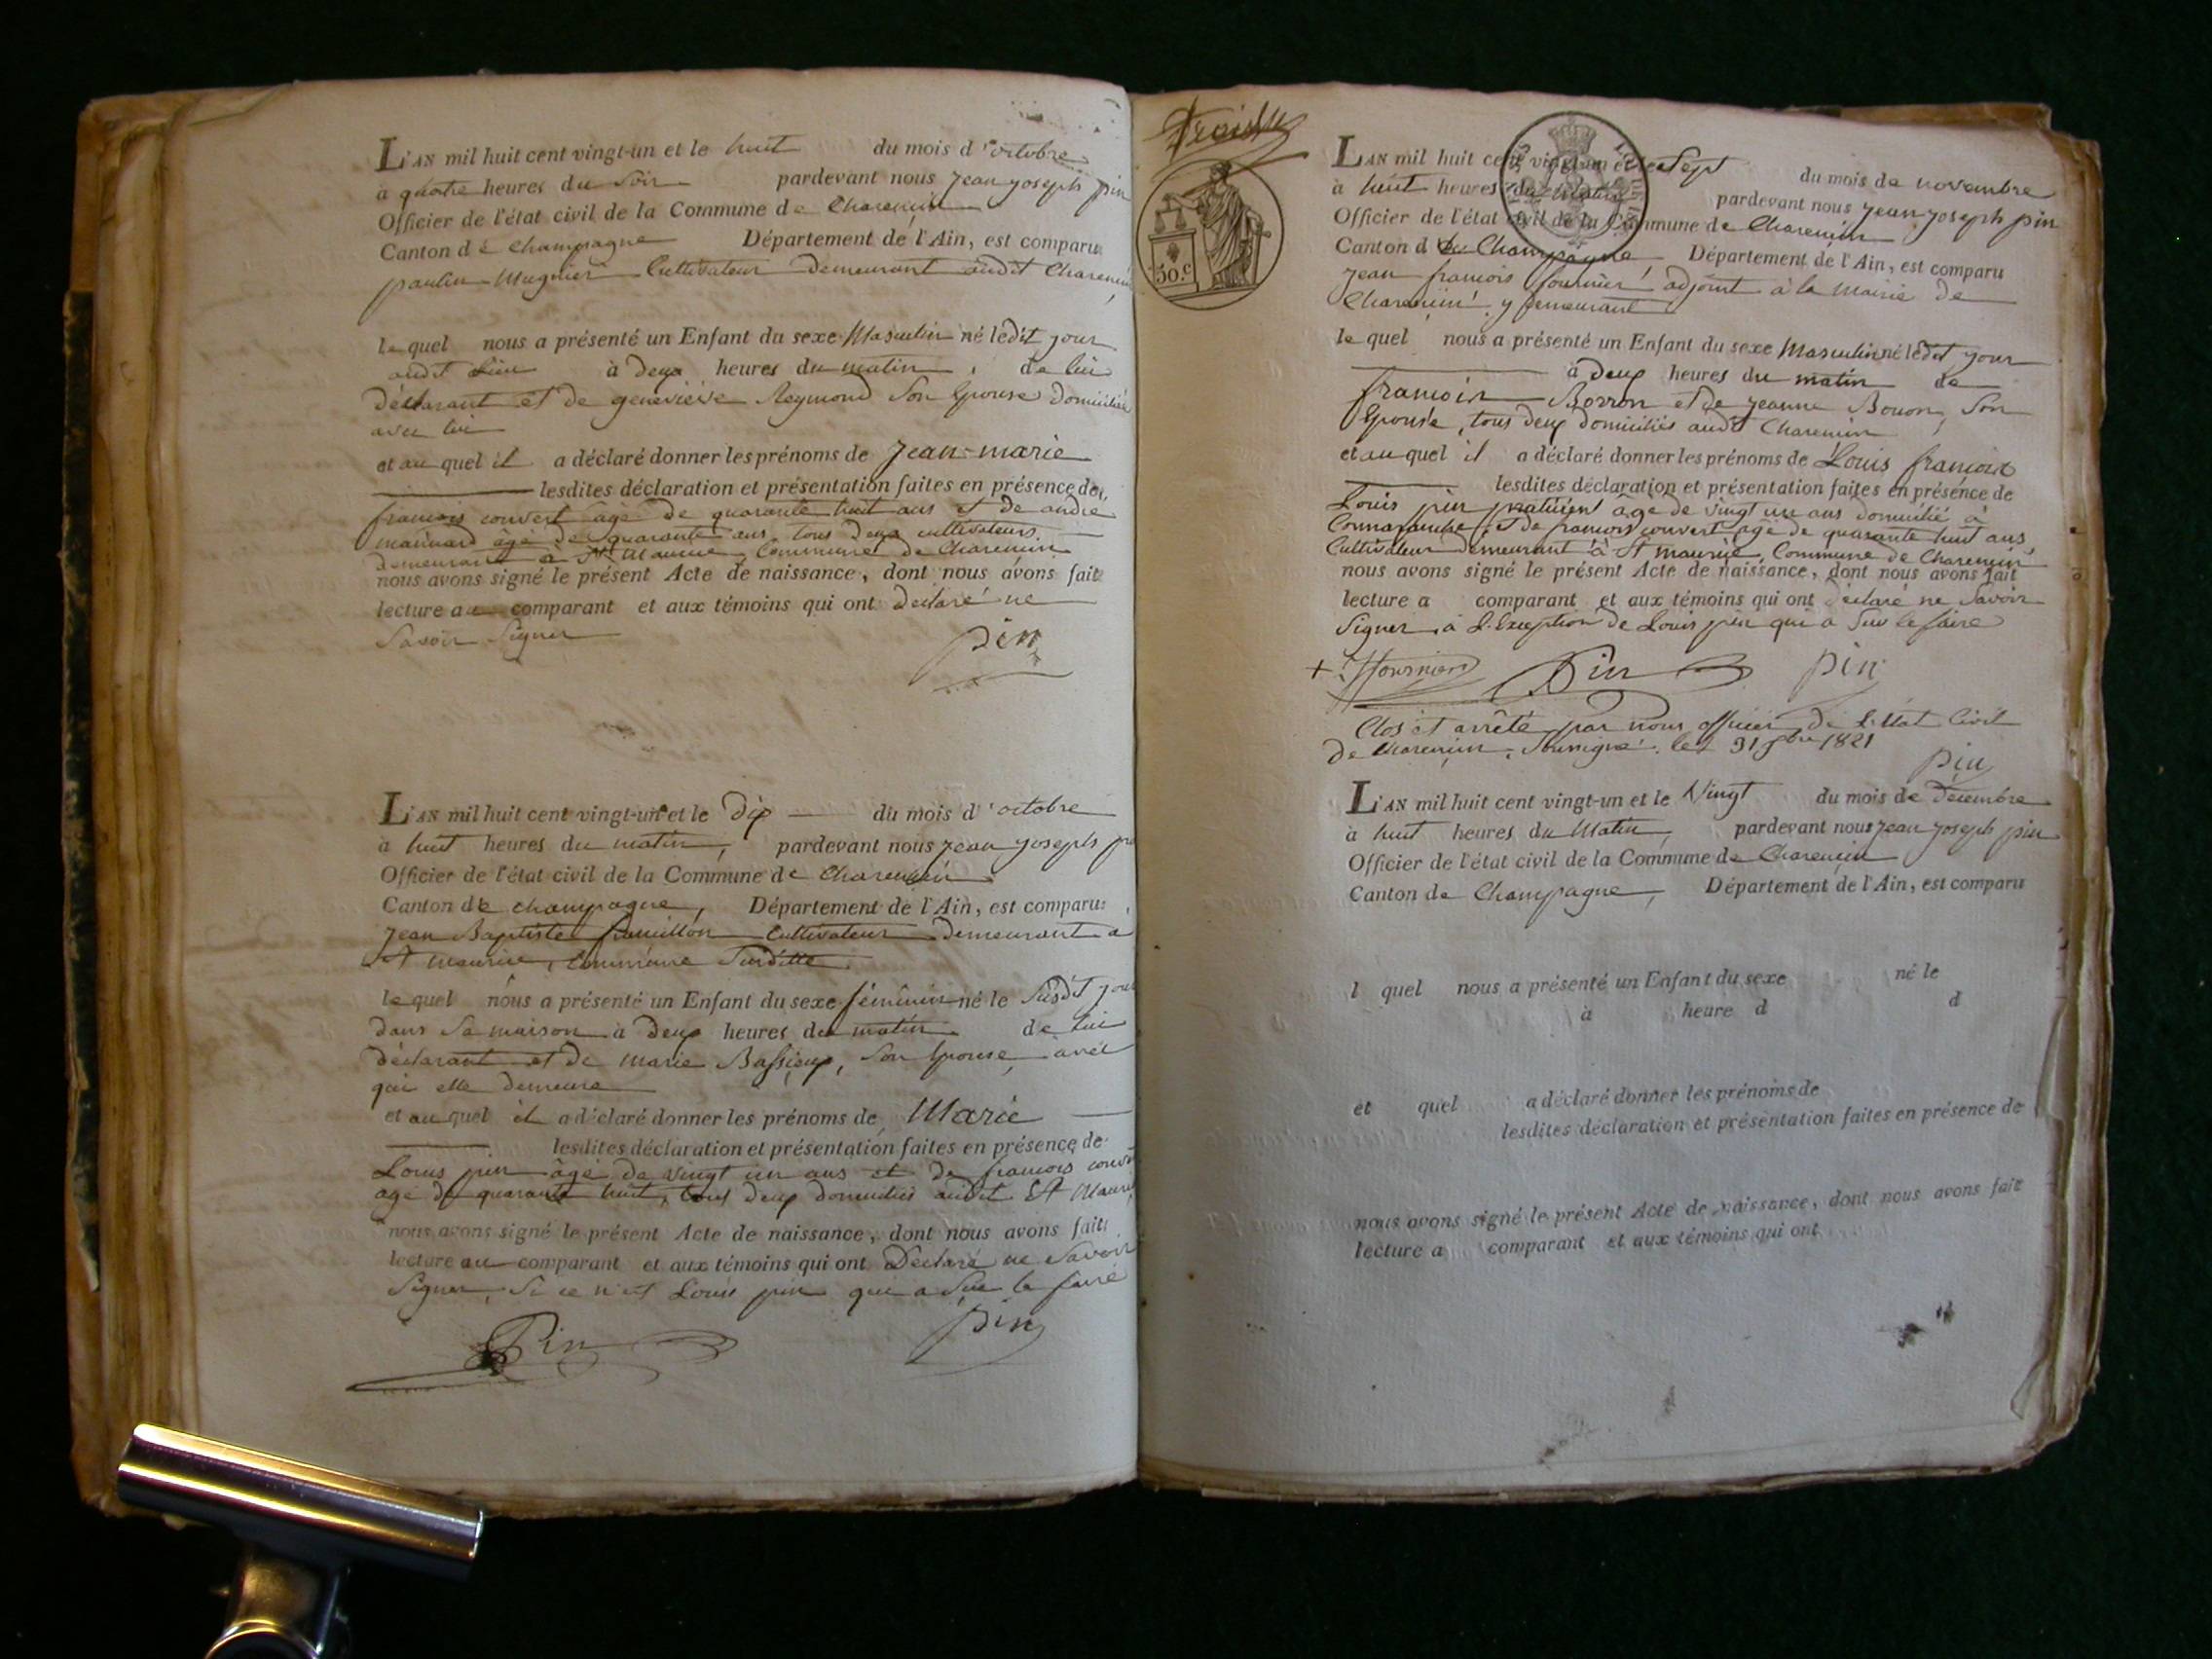 L'AN mil huit cent vingt-un et le huit du mois d'octobre
à quatre heures du soir pardevant nous jean joseph pin
Officier de l'état civil de la Commune de Charencin
Canton de Champagne Département de l'Ain, est comparu
paulin Mugnier Cultivateur demeurant audit Charencin
lequel nous a présenté un Enfant du sexe Masculin né ledit jour
audit Lieu à deux heures du matin, de lui
déclarant et de geneviève Reymond son Epouse domiciliée
avec lui
et au quel il a déclaré donner les prénoms de Jean-marie
lesdites déclaration et présentation faites en présence de
francois convert âgé de quarante huit ans et de andré
âgé de quarante ans, tous deux cultivateurs
demeurant à St Maurice, Commune de Charencin
nous avons signé le présent Acte de naissance, dont nous avons fait
lecture au comparant et aux témoins qui ont declaré ne
Savoir Signer
pin
L'AN mil huit cent vingt-un et le dix du mois d'octobre
à huit heures du matin, pardevant nous jean joseph
Officier de l'état civil de la Commune de Charencin
Canton de champagne, Département de l'Ain, est comparu
jean Baptiste Cultivateur demeurant à
St Maurice, Commune Susditte
lequel nous a présenté un Enfant du sexe féminin né le Susdit jour
dans Sa maison à deux heures du matin de lui
déclarant et de marie Bassieux, Son Epouse, avec
qui elle demeure
et au quel il a déclaré donner les prénoms de Marie
lesdites déclaration et présentation faites en présence de
Louis pin âgé de vingt un ans et de francois
agé de quarante huit, tous deux domiciliés audit St
nous avons signé le présent Acte de naissance, dont nous avons fait
lecture au comparant et aux témoins qui ont Declaré ne Savoir
Signer, Si ce n'est Louis pin qui a Sue le faire
Pin pin
50.c
L'AN mil huit cent vingt-un et le Sept du mois de novembre
à huit heures du matin pardevant nous jean joseph pin
Officier de l'état civil de la Commune de Charencin
Canton de Champagne Département de l'Ain, est comparu
jean francois fournier, adjoint à la Mairie de
Charencin y demeurant
lequel nous a présenté un Enfant du sexe Masculin né ledit jour
à deux heures du matin de
francois Borron et de jeanne Bouon, Son
Epouse, tous deux domiciliés audit Charencin
et au quel il a déclaré donner les prénoms de Louis francois
lesdites déclaration et présentation faites en présence de
Louis pin âgé de vingt un ans domicilié à
et de francois convert agé de quarante huit ans,
Cultivateur demeurant à St maurice, Commune de Charencin
nous avons signé le présent Acte de naissance, dont nous avons fait
lecture a comparant et aux témoins qui ont déclaré ne Savoir
Signer, à L'Exception de Louis pin qui a Sus le faire
+ fournier Pin pin
Clos et arrêté par nous officier de L'Etat Civil
de Charencin, Soussigné. le 31 1821
pin
L'AN mil huit cent vingt-un et le Vingt du mois de Décembre
à huit heures du Matin, pardevant nous jean joseph pin
Officier de l'état civil de la Commune de Charencin
Canton de Champagne, Département de l'Ain, est comparu
l quel nous a présenté un Enfant du sexe né le
à heure d d
et quel a déclaré donner les prénoms de
lesdites déclaration et présentation faites en présence de
nous avons signé le présent Acte de naissance, dont nous avons fait
lecture a comparant et aux témoins qui ont